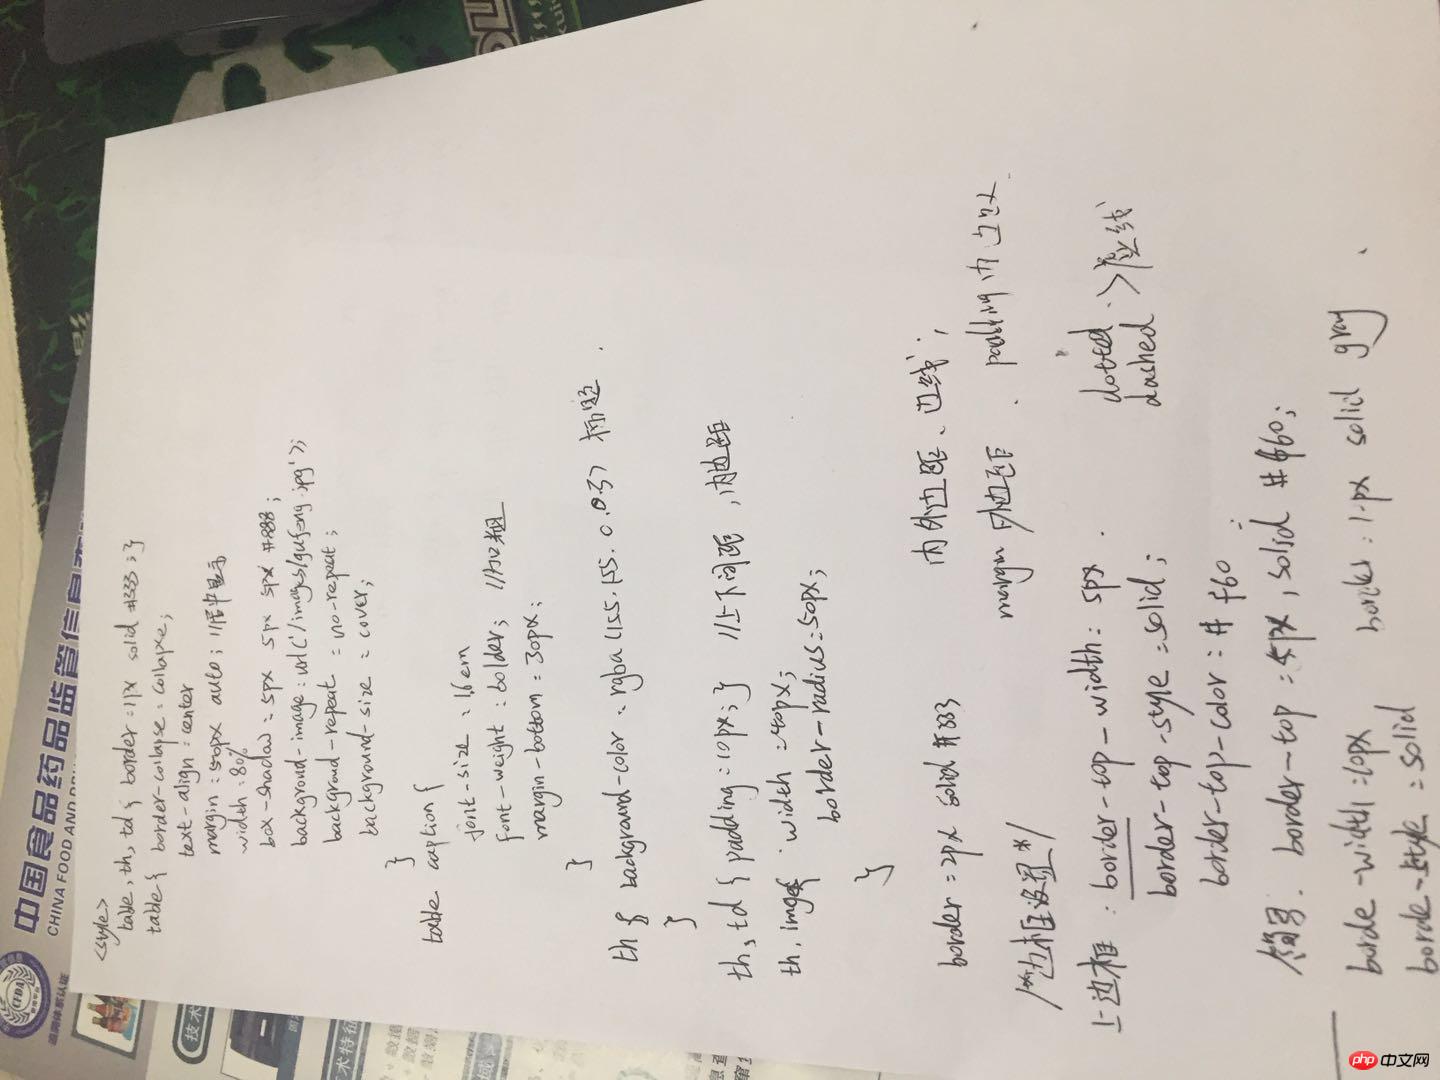 <style>
table, th, td { border: 1px solid #333; }
table { border-collapse: collapse;
text-align: center
margin: 50px auto; //居中显示
width: 80%
box-shadow: 5px 5px 5px #888;
background-image: url('/images/gufeng.jpg');
backgroud-repeat: no-repeat;
background-size: cover;
}
table caption {
font-size: 1.6em
font-weight: bolder; //加粗
margin-bottom: 30px;
}
th { background-color: rgba(155.155.0.03) 标题.
}
th, td { padding: 10px; } //上下间距, 内边距
th, img { width: 50px;
border-radius: 50px;
}
border: 2px solid #333
内外边距、边线,
margin 外边距. padding 内边距.
/*边框设置*/
上边框: border-top-width: 5px.
border-top-style: solid;
border-top-color: #f60
dotted
dashed >虚线
简写. border-top: 5px, solid #f60;
borde-width: 10px
borde-style: solid
border: 1px solid gray
中国食品药品监管信息
CHINA FOOD AND
CFDA
追溯体系认证
技术
术特征
php 中文网